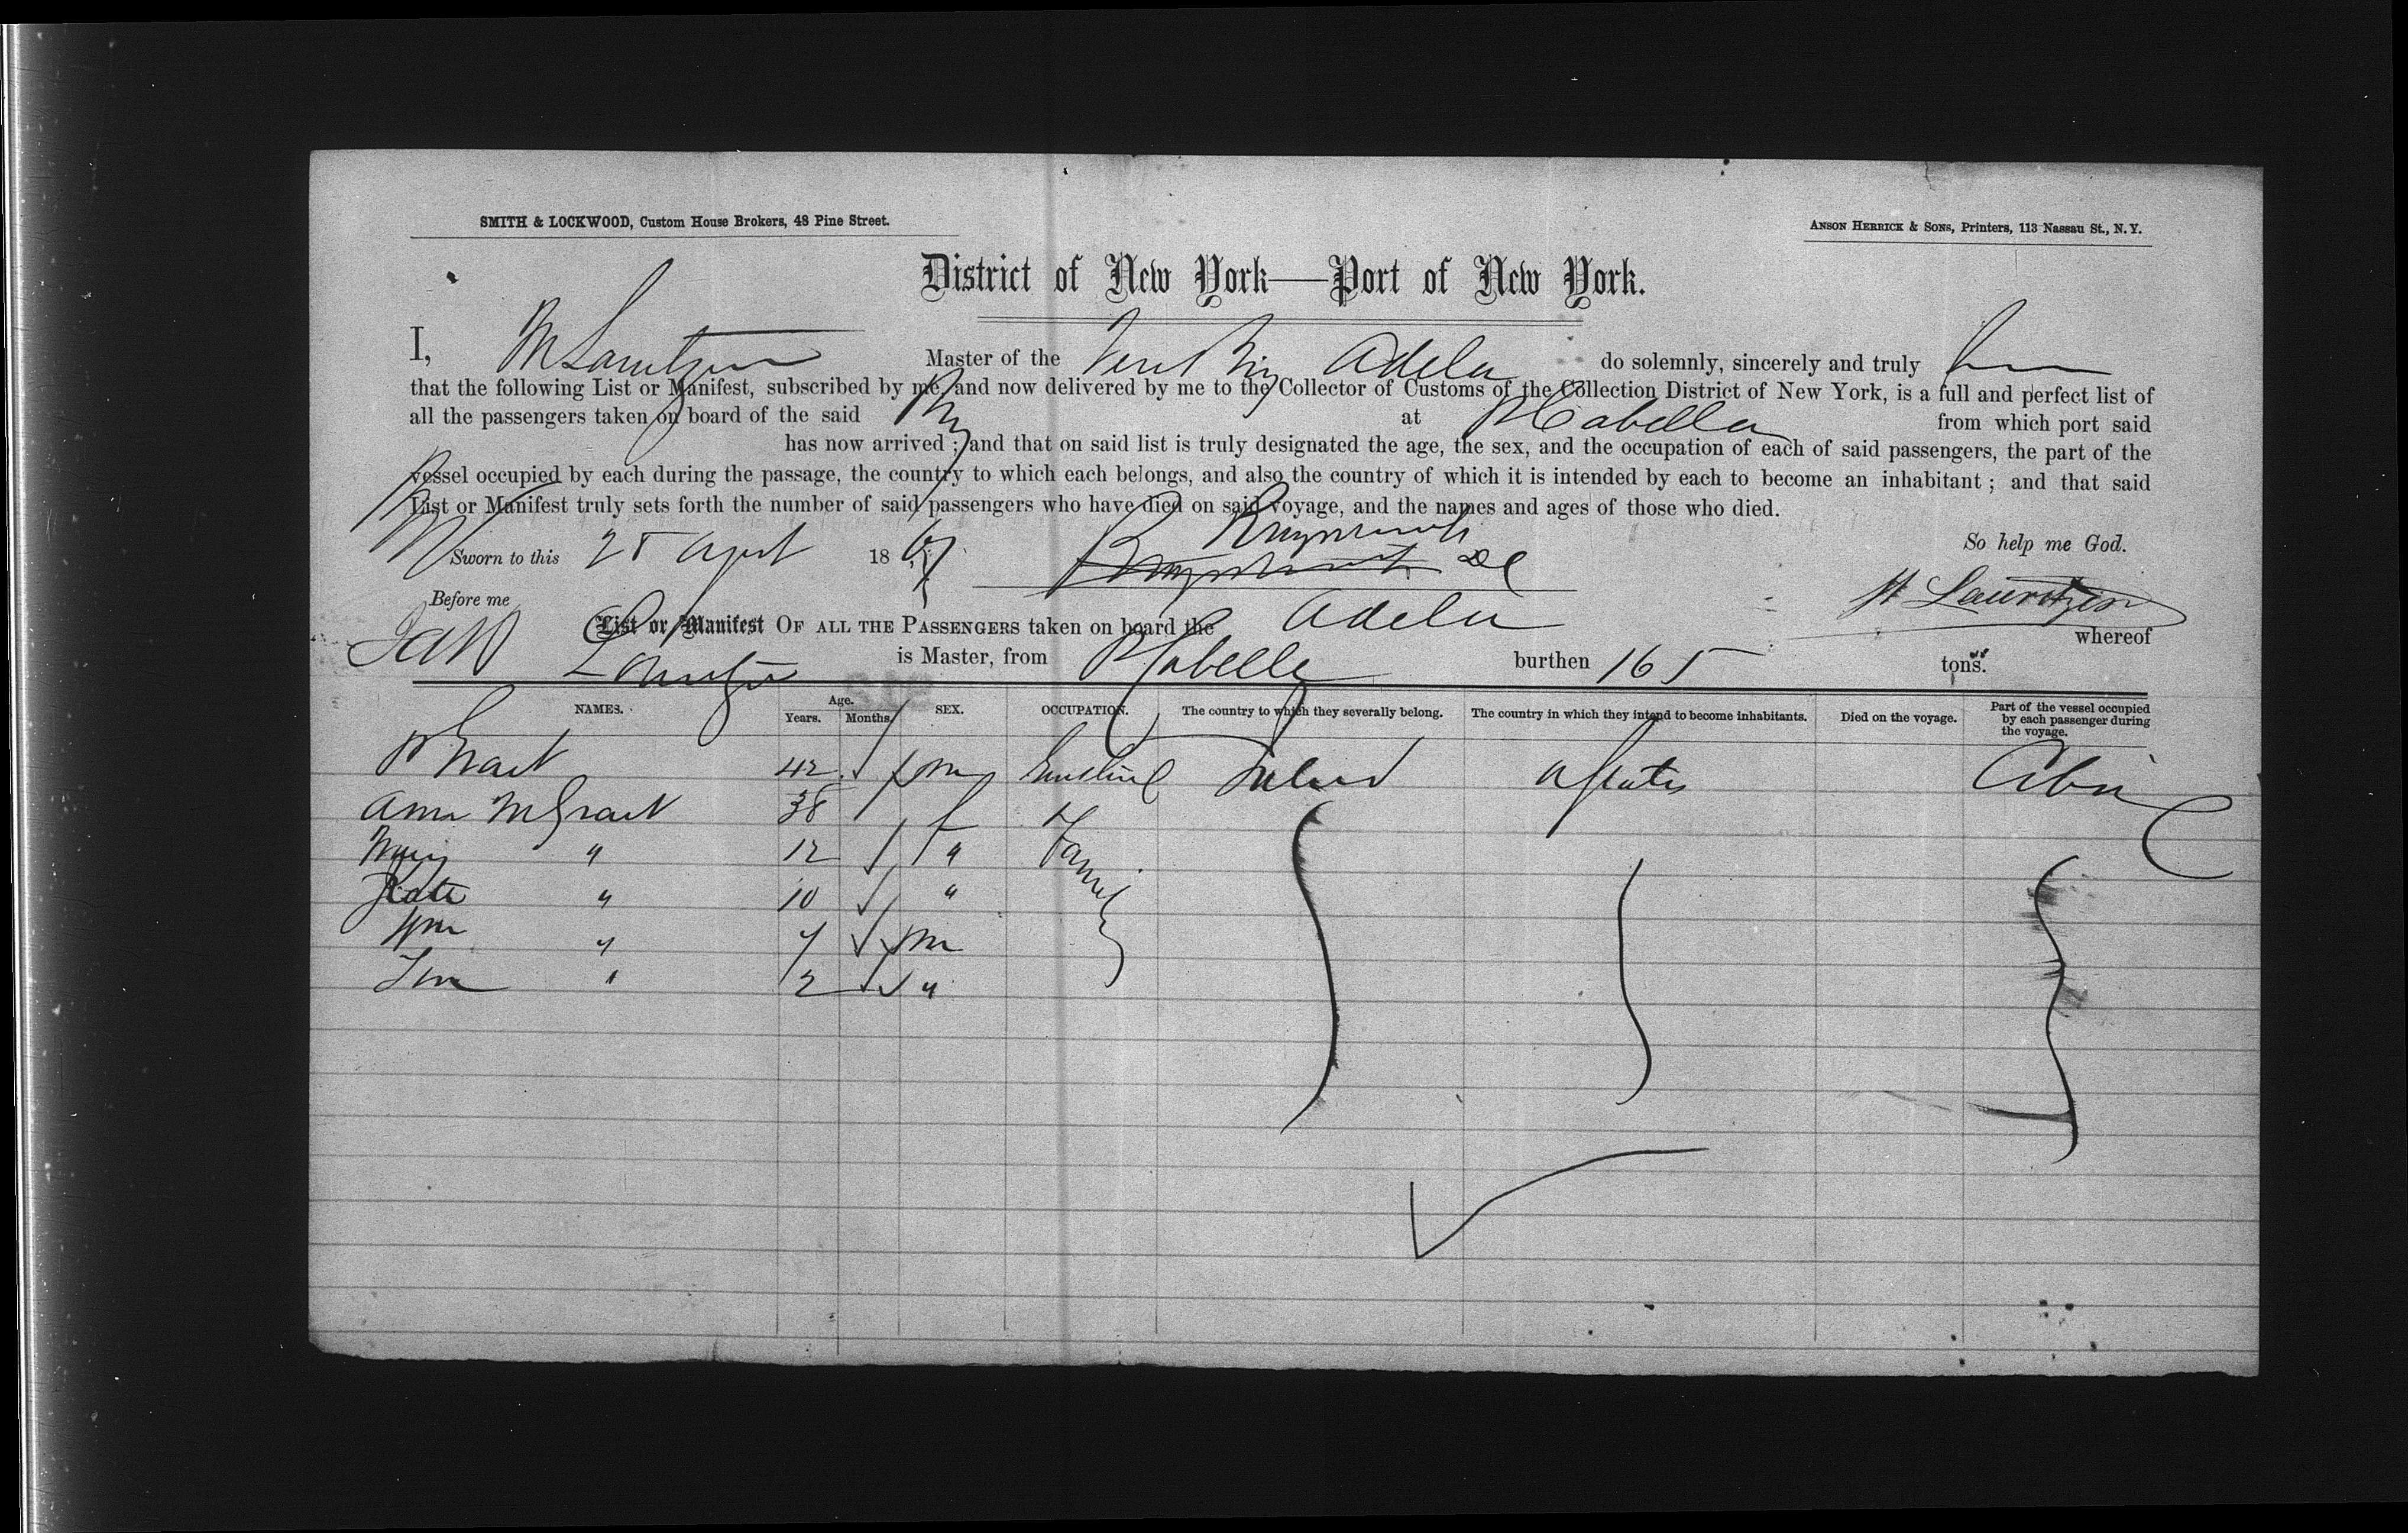 SMITH & LOCKWOOD, Custom House Brokers, 48 Pine Street.
ANSON HERRICK & SONS, Printers, 113 Nassau St., N. Y.
District of New York—Port of New York.
I, M Lauritzen Master of the Brig Adela do solemnly, sincerely and truly
that the following List or Manifest, subscribed by me, and now delivered by me to the Collector of Customs of the Collection District of New York, is a full and perfect list of
all the passengers taken on board of the said Brig at P Cabella from which port said
Brig has now arrived; and that on said list is truly designated the age, the sex, and the occupation of each of said passengers, the part of the
vessel occupied by each during the passage, the country to which each belongs, and also the country of which it is intended by each to become an inhabitant; and that said
List or Manifest truly sets forth the number of said passengers who have died on said voyage, and the names and ages of those who died.
So help me God.
Sworn to this 25 April 1867
Before me
Lauritzen
List or Manifest OF ALL THE PASSENGERS taken on board the Adela whereof
Lauritzen is Master, from P Cabella burthen 165 tons.
NAMES. Age. Years. Months. SEX. OCCUPATION. The country to which they severally belong. The country in which they intend to become inhabitants. Died on the voyage. Part of the vessel occupied by each passenger during the voyage.
42 m Ireland U States Cabin
Ann McGrait 38 f Family
Mary " 12 "
Kate " 10 "
Wm " 7 m
" 2 "